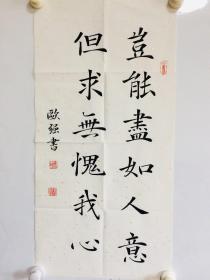 豈能盡如人意
但求無愧我心
歐強書